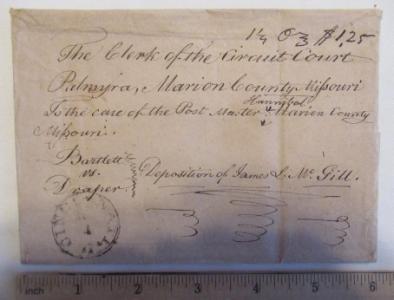 1¼ Oz $1,25
The Clerk of the Circuit Court
Palmyra, Marion County Missouri
Hannibal
To the care of the Post Master Marion County
Missouri.
Bartlett
vs.
Draper
Deposition of James S. Mc Gill.
inch 1 2 3 4 5 6